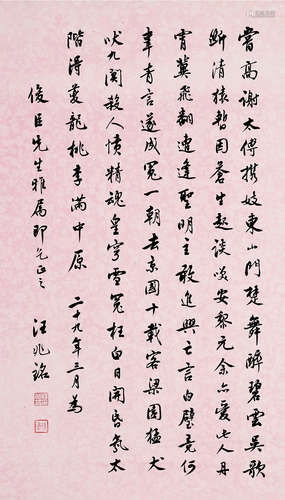 嘗高謝太傅攜妓東山門楚舞醉碧雲吳歌
斷清猿暫因蒼生起談笑安黎元余亦愛此人丹
霄冀飛翻遭逢聖明主敢進興亡言白璧竟何
辜青言遂成冤一朝去京國十載客梁園猛犬
吠九關殺人憤精魂皇穹雪冤枉白日開昏氛太
階得夔龍桃李滿中原 二十九年三月為
俊臣先生雅屬即乞正之 汪兆銘